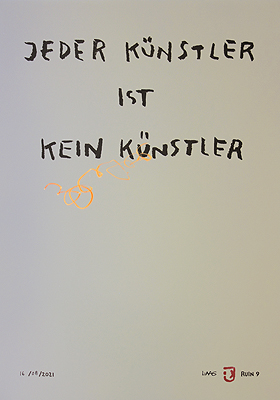 JEDER KÜNSTLER
IST
KEIN KÜNSTLER
16/08/2021
RUIN 9